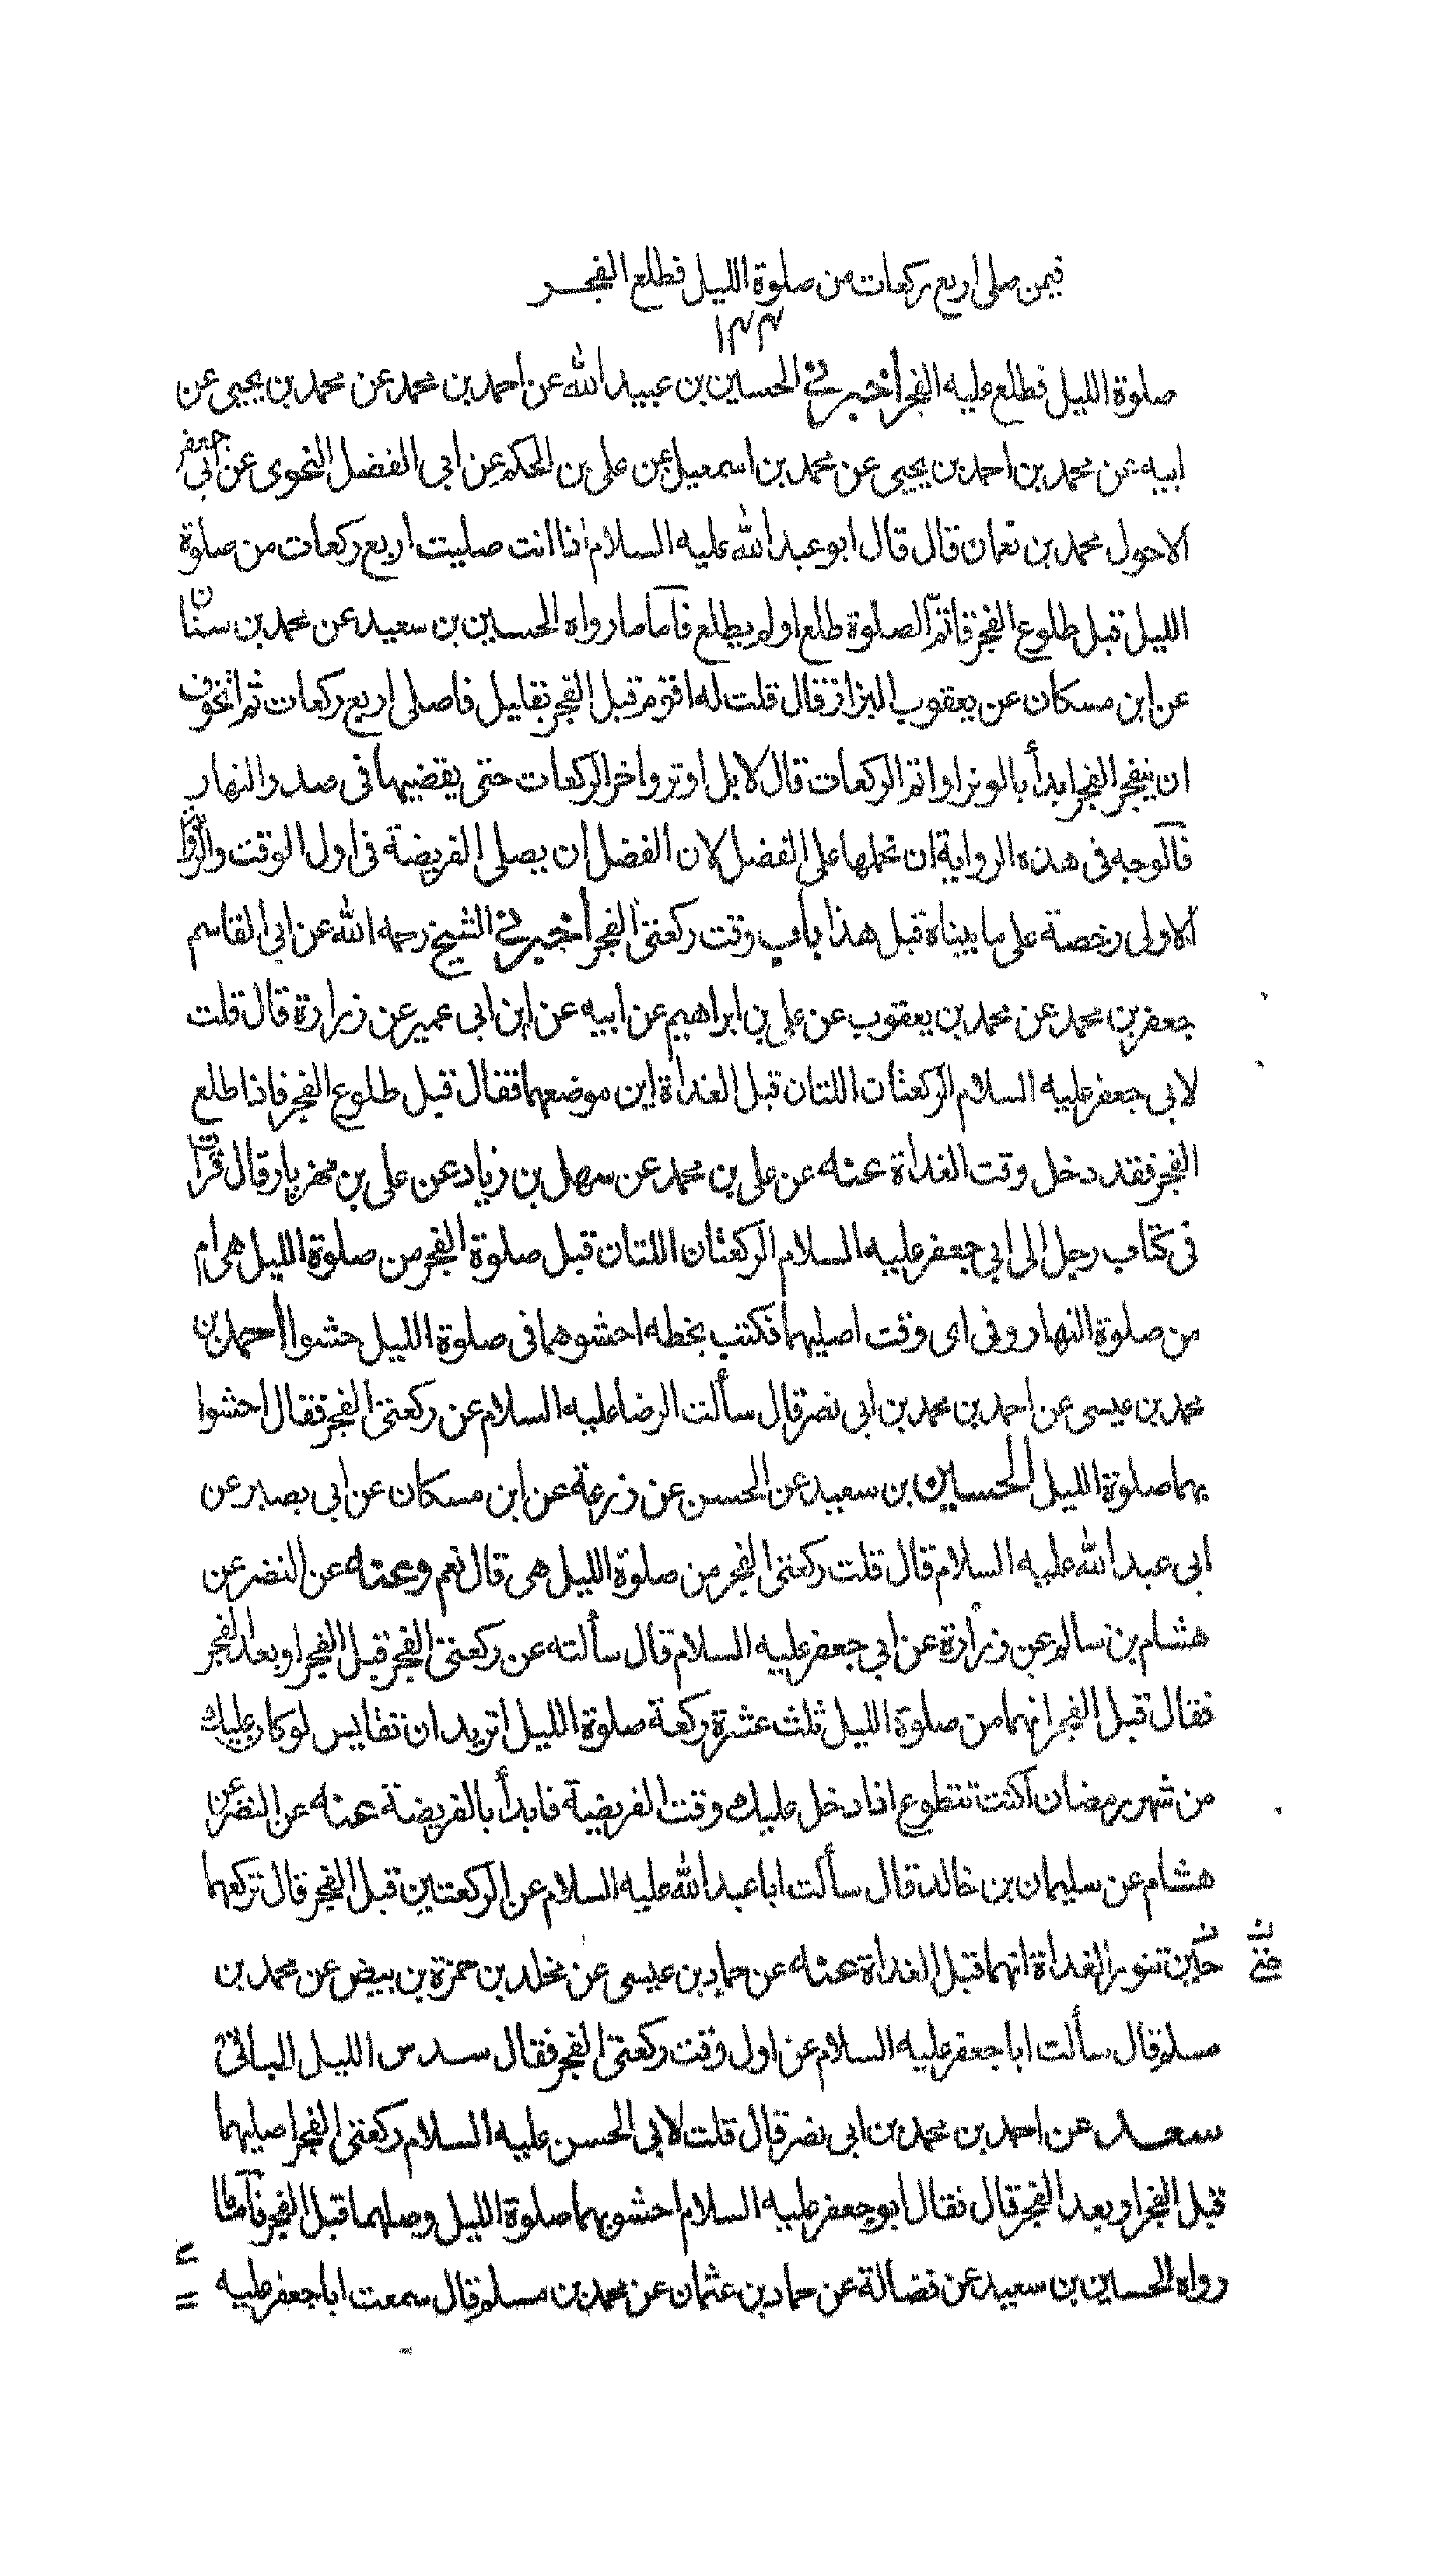 فيمن صلى اربع ركعات من صلوة الليل فطلع الفجر
١٣٣
صلوة الليل فطلع عليه الفجر أخبرني الحسين بن عبيد الله عن احمد بن محمد عن محمد بن يحيى عن
ابيه عن محمد بن احمد بن يحيى عن محمد بن اسمعيل عن على بن الحكم عن ابى الفضل النحوى عن ابى جعفر
الاحول محمد بن نعمان قال قال ابو عبد الله عليه السلام اذا انت صليت اربع ركعات من صلوة
الليل قبل طلوع الفجر فاتم الصلوة طلع اولم يطلع فاما ما رواه الحسين بن سعيد عن محمد بن سنان
عن ابن مسكان عن يعقوب البزاز قال قلت له اقوم قبل الفجر بقليل فاصلى اربع ركعات ثم اتخوف
ان ينفجر الفجر ابدأ بالوتر او اتم الركعات قال لا بل اوتر واخر الركعات حتى يقضيها فى صدر النهار
فالوجه فى هذه الرواية ان نحملها على الفضل لان الفضل ان يصلى الفريضة فى اول الوقت والرواية
الاولى رخصة على ما بيناه قبل هذا باب وقت ركعتى الفجر أخبرني الشيخ رحمه الله عن ابى القاسم
جعفر بن محمد عن محمد بن يعقوب عن على بن ابراهيم عن ابيه عن ابن ابى عمير عن زرارة قال قلت
لابى جعفر عليه السلام الركعتان اللتان قبل الغداة اين موضعهما فقال قبل طلوع الفجر فاذا طلع
الفجر فقد دخل وقت الغداة عنه عن على بن محمد عن سهل بن زياد عن على بن مهزيار قال قرات
فى كتاب رجل الى ابي جعفر عليه السلام الركعتان اللتان قبل صلوة الفجر من صلوة الليل هى ام
من صلوة النهار وفى اى وقت اصليهما فكتب بخطه احشوهما فى صلوة الليل حشوا احمد بن
محمد بن عيسى عن احمد بن محمد بن ابى نصر قال سألت الرضا عليه السلام عن ركعتى الفجر فقال احشوا
بهما صلوة الليل الحسين بن سعيد عن الحسن عن زرعة عن ابن مسكان عن ابى بصير عن
ابى عبد الله عليه السلام قال قلت ركعتى الفجر من صلوة الليل هى قال نعم وعنه عن النضر عن
هشام بن سالم عن زرارة عن ابي جعفر عليه السلام قال سألته عن ركعتى الفجر قبل الفجر او بعد الفجر
فقال قبل الفجر انهما من صلوة الليل ثلث عشرة ركعة صلوة الليل اتريد ان تقايس لو كان عليك
من شهر رمضان اكنت تتطوع اذا دخل عليك وقت الفريضة فابدأ بالفريضة عنه عن النضر عن
هشام عن سليمان بن خالد قال سألت ابا عبد الله عليه السلام عن الركعتين قبل الفجر قال تركعهما
حين تنور الغداة انهما قبل الغداة عنه عن حماد بن عيسى عن مخلد بن حمزة بن بيض عن محمد بن
مسلم قال سألت ابا جعفر عليه السلام عن اول وقت ركعتى الفجر فقال سدس الليل الباقى
سعد عن احمد بن محمد بن ابى نصر قال قلت لابى الحسن عليه السلام ركعتى الفجر اصليهما
قبل الفجر او بعد الفجر قال فقال ابو جعفر عليه السلام احشو بهما صلوة الليل وصلهما قبل الفجر فاما ما
رواه الحسين بن سعيد عن فضالة عن حماد بن عثمان عن محمد بن مسلم قال سمعت ابا جعفر عليه